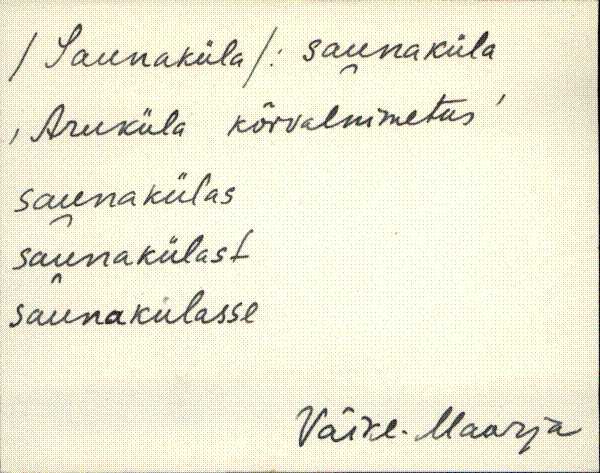 /Saunaküla/: saunaküla
‚Aruküla kõrvalnimetus’
saunakülas
saunakülast
saunakülasse
Väike-Maarja